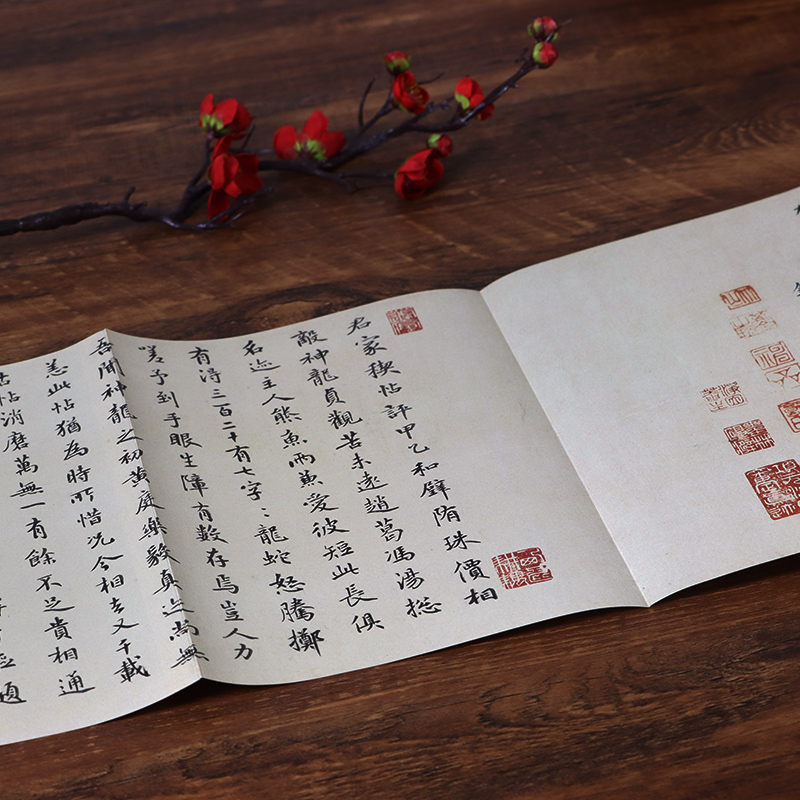 君家禊帖評甲乙和璧隋珠價相
敵神龍貞觀苦未遠趙葛馮湯揔
名迹主人熊魚兩兼愛彼短此長俱
有得三百二十有七字〻龍蛇怒騰擲
嗟予到手眼生障有數存焉豈人力
吾聞神龍之初黃庭樂毅真迹尚無
恙此帖猶為時所惜況今相去又千載
古帖消磨萬無一有餘不足貴相通
題